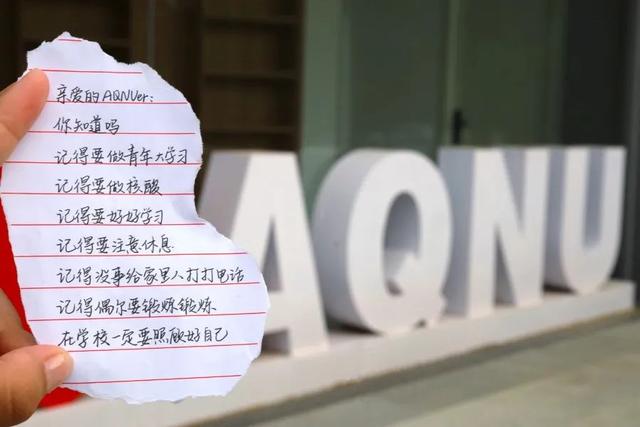 亲爱的AQNUer:
你知道吗
记得要做青年大学习
记得要做核酸
记得要好好学习
记得要注意休息
记得没事给家里人打打电话
记得偶尔要锻炼锻炼
在学校一定要照顾好自己
AQNU